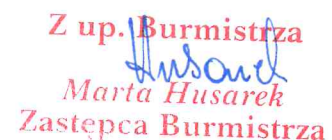 Z up. Burmistrza
Husarek
Marta Husarek
Zastępca Burmistrza